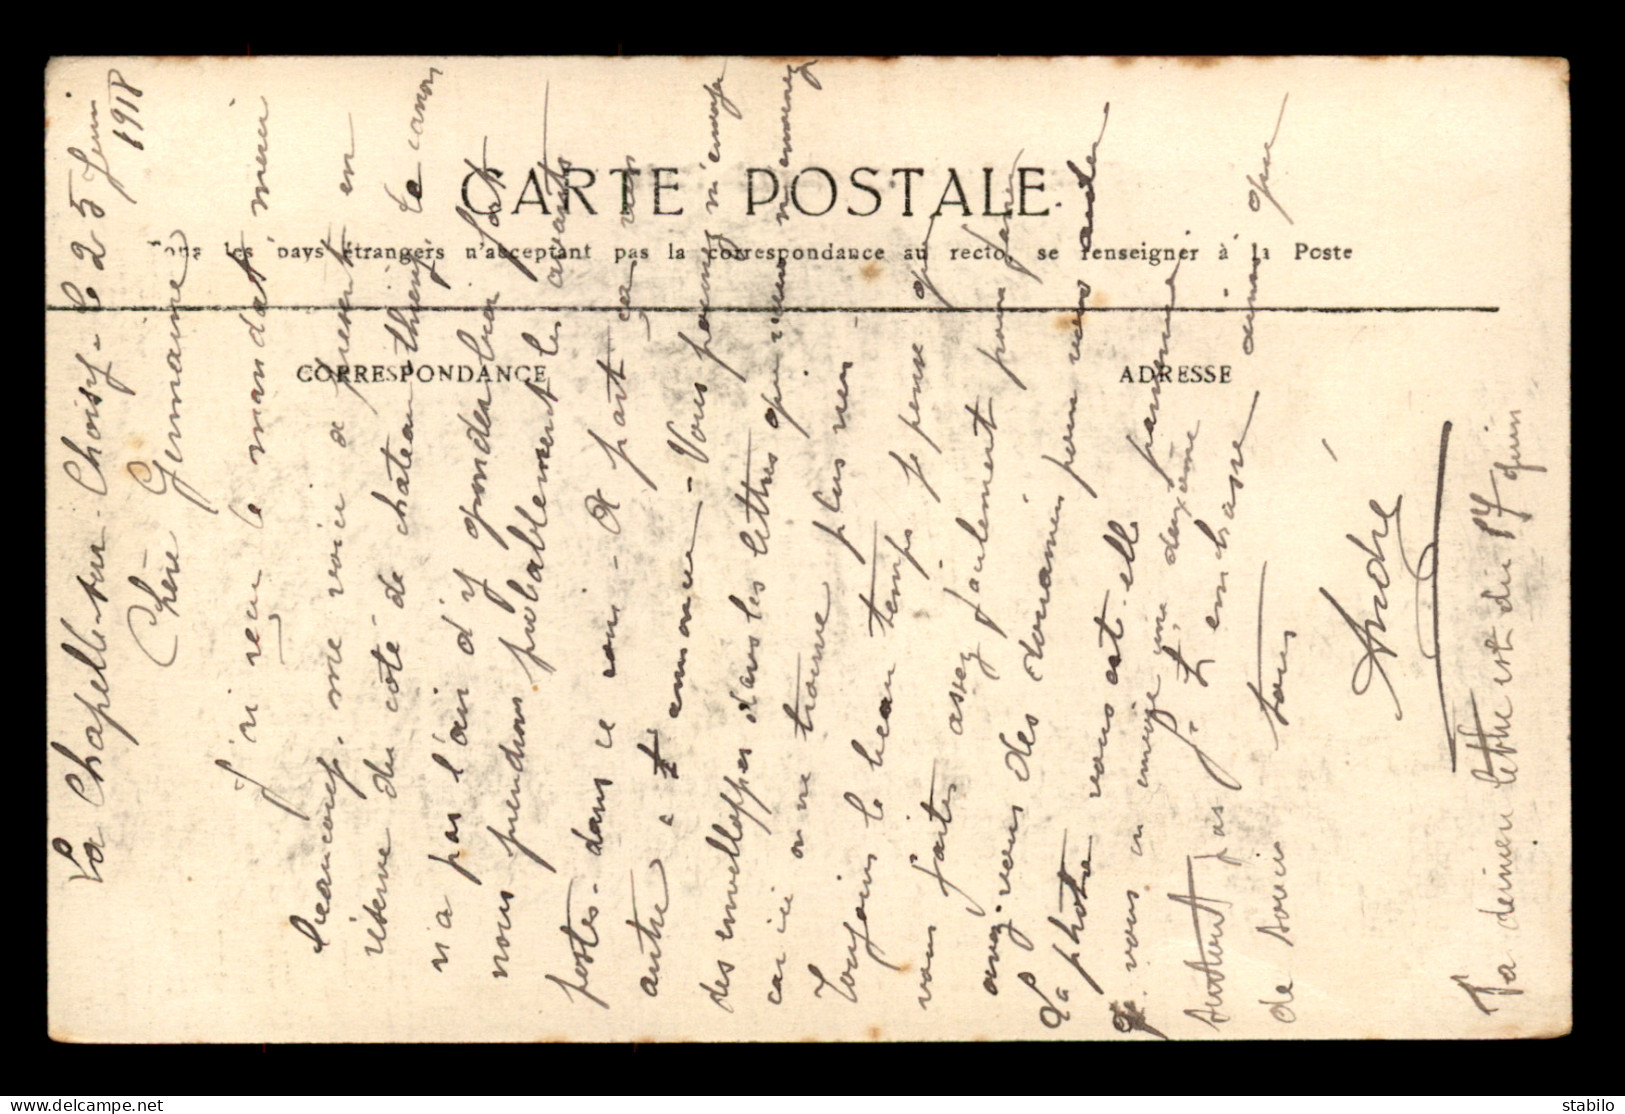 CARTE POSTALE
les pays étrangers n'acceptant pas la correspondance au recto, se renseigner à la Poste
CORRESPONDANCE
ADRESSE
La Chapelle-sur-Choisy - le 25 Juin
1918
Chère Germaine
J'ai reçu le mandat merci
beaucoup. me voici a présent en
réserve du coté de chateau thierry le canon
n'a pas l'air d'y gronder bien fort
nous prendrons probablement les avants
postes. dans ce coin - a part ca rien
autre a t annoncer - Vous pouvez m'envoyer
des enveloppes dans les lettres que vous m'envoyez
car ici on ne trouve plus rien -
Toujours le beau temps je pense que
vous faites assez facilement pour faner
avez-vous des pour vous aider
La photo vous est-elle parvenue
vous en envoye une deuxième
surtout pas Je t'embrasse ainsi que
de souci tous
André
Ta dernière lettre est du 17 Juin
stabilo